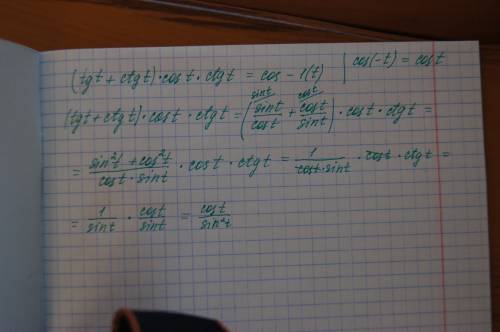 (tgt + ctgt) · cost · ctgt = cos - 1(t) | cos(-t) = cost
(tgt + ctgt) · cost · ctgt = (sint/cost + cost/sint) · cost · ctgt =
= (sin²t + cos²t)/(cost · sint) · cost · ctgt = 1/(cost · sint) · cost · ctgt =
= 1/sint · cost/sint = cost/sin²t